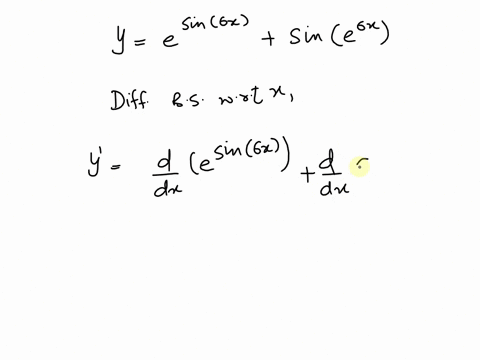 y = e^{sin(6x)} + sin(e^{6x})
Diff. B.S. w.r.t x,
y' = d/dx (e^{sin(6x)}) + d/dx